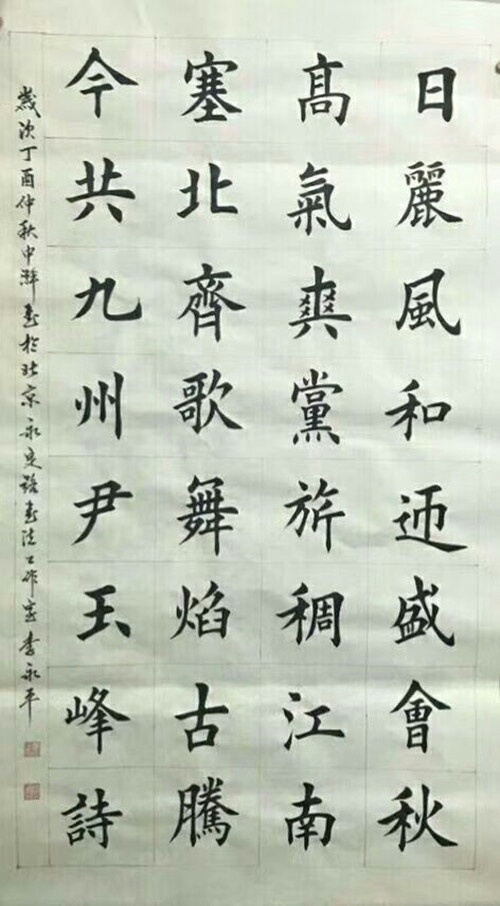 日麗風和迊盛會秋
髙氣爽黨旂稠江南
塞北齊歌舞焰古騰
今共九州尹玉峰詩
歲次丁酉仲秋中澣書於北京永定路書法工作室李永平